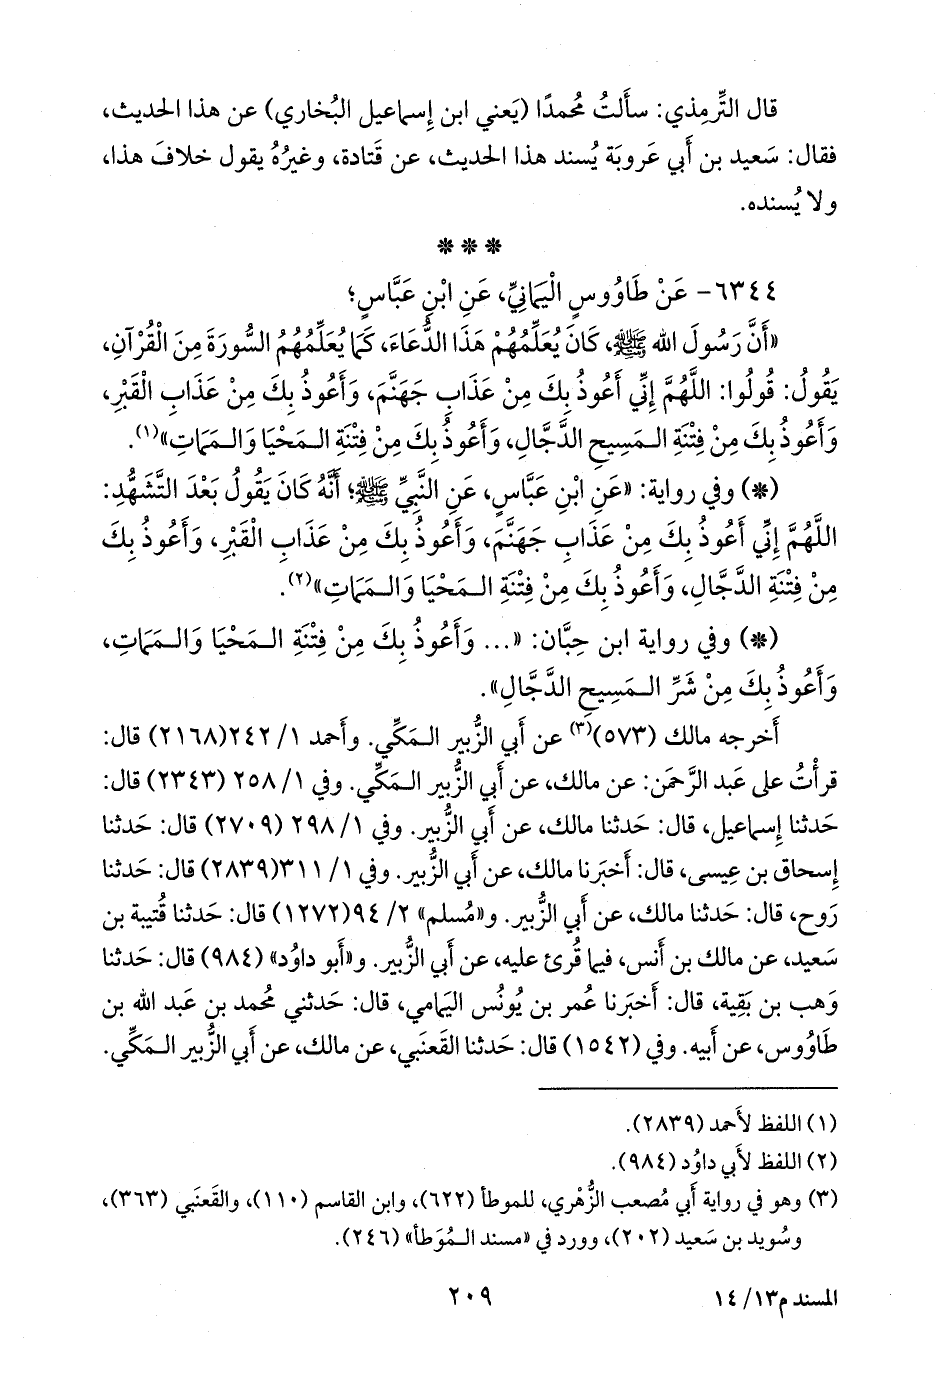 قال التِّرمِذي: سأَلتُ مُحمدًا (يَعني ابن إِسماعيل البُخاري) عن هذا الحديث،
فقال: سَعيد بن أَبي عَروبَة يُسند هذا الحديث، عن قَتادة، وغيرُهُ يقول خلافَ هذا،
ولا يُسنده.
* * *
٦٣٤٤- عَنْ طَاوُوسٍ الْيَمَانِيِّ، عَنِ ابْنِ عَبَّاسٍ؛
«أَنَّ رَسُولَ الله ﷺ، كَانَ يُعَلِّمُهُمْ هَذَا الدُّعَاءَ، كَمَا يُعَلِّمُهُمُ السُّورَةَ مِنَ الْقُرْآنِ،
يَقُولُ: قُولُوا: اللَّهُمَّ إِنِّي أَعُوذُ بِكَ مِنْ عَذَابِ جَهَنَّمَ، وَأَعُوذُ بِكَ مِنْ عَذَابِ الْقَبْرِ،
وَأَعُوذُ بِكَ مِنْ فِتْنَةِ الـمَسِيحِ الدَّجَّالِ، وَأَعُوذُ بِكَ مِنْ فِتْنَةِ الـمَحْيَا وَالـمَمَاتِ»(١).
(*) وفي رواية: «عَنِ ابْنِ عَبَّاسٍ، عَنِ النَّبِيِّ ﷺ؛ أَنَّهُ كَانَ يَقُولُ بَعْدَ التَّشَهُّدِ:
اللَّهُمَّ إِنِّي أَعُوذُ بِكَ مِنْ عَذَابِ جَهَنَّمَ، وَأَعُوذُ بِكَ مِنْ عَذَابِ الْقَبْرِ، وَأَعُوذُ بِكَ
مِنْ فِتْنَةِ الدَّجَّالِ، وَأَعُوذُ بِكَ مِنْ فِتْنَةِ الـمَحْيَا وَالـمَمَاتِ»(٢).
(*) وفي رواية ابن حِبَّان: «... وَأَعُوذُ بِكَ مِنْ فِتْنَةِ الـمَحْيَا وَالـمَمَاتِ،
وَأَعُوذُ بِكَ مِنْ شَرِّ الـمَسِيحِ الدَّجَّالِ».
أَخرجه مالك (٥٧٣)(٣) عن أَبي الزُّبير الـمَكِّي. وأَحمد ١/ ٢٤٢(٢١٦٨) قال:
قرأْتُ على عَبد الرَّحمَن: عن مالك، عن أَبي الزُّبير الـمَكِّي. وفي ١/ ٢٥٨ (٢٣٤٣) قال:
حَدثنا إِسماعيل، قال: حَدثنا مالك، عن أَبي الزُّبير. وفي ١/ ٢٩٨ (٢٧٠٩) قال: حَدثنا
إِسحاق بن عِيسى، قال: أَخبَرنا مالك، عن أَبي الزُّبير. وفي ١/ ٣١١(٢٨٣٩) قال: حَدثنا
رَوح، قال: حَدثنا مالك، عن أَبي الزُّبير. و«مُسلم» ٢/ ٩٤(١٢٧٢) قال: حَدثنا قُتيبة بن
سَعيد، عن مالك بن أَنس، فيما قُرئ عليه، عن أَبي الزُّبير. و«أَبو داوُد» (٩٨٤) قال: حَدثنا
وَهب بن بَقِية، قال: أَخبَرنا عُمر بن يُونُس اليَمامي، قال: حَدثني مُحمد بن عَبد الله بن
طَاوُوس، عن أَبيه. وفي (١٥٤٢) قال: حَدثنا القَعنَبي، عن مالك، عن أَبي الزُّبير الـمَكِّي.
(١) اللفظ لأَحمد (٢٨٣٩).
(٢) اللفظ لأَبي داوُد (٩٨٤).
(٣) وهو في رواية أَبي مُصعب الزُّهْري، للموطأ (٦٢٢)، وابن القاسم (١١٠)، والقَعنَبي (٣٦٣)،
وسُويد بن سَعيد (٢٠٢)، وورد في «مسند الـمُوَطأ» (٢٤٦).
المسند م١٣/ ١٤
٢٠٩